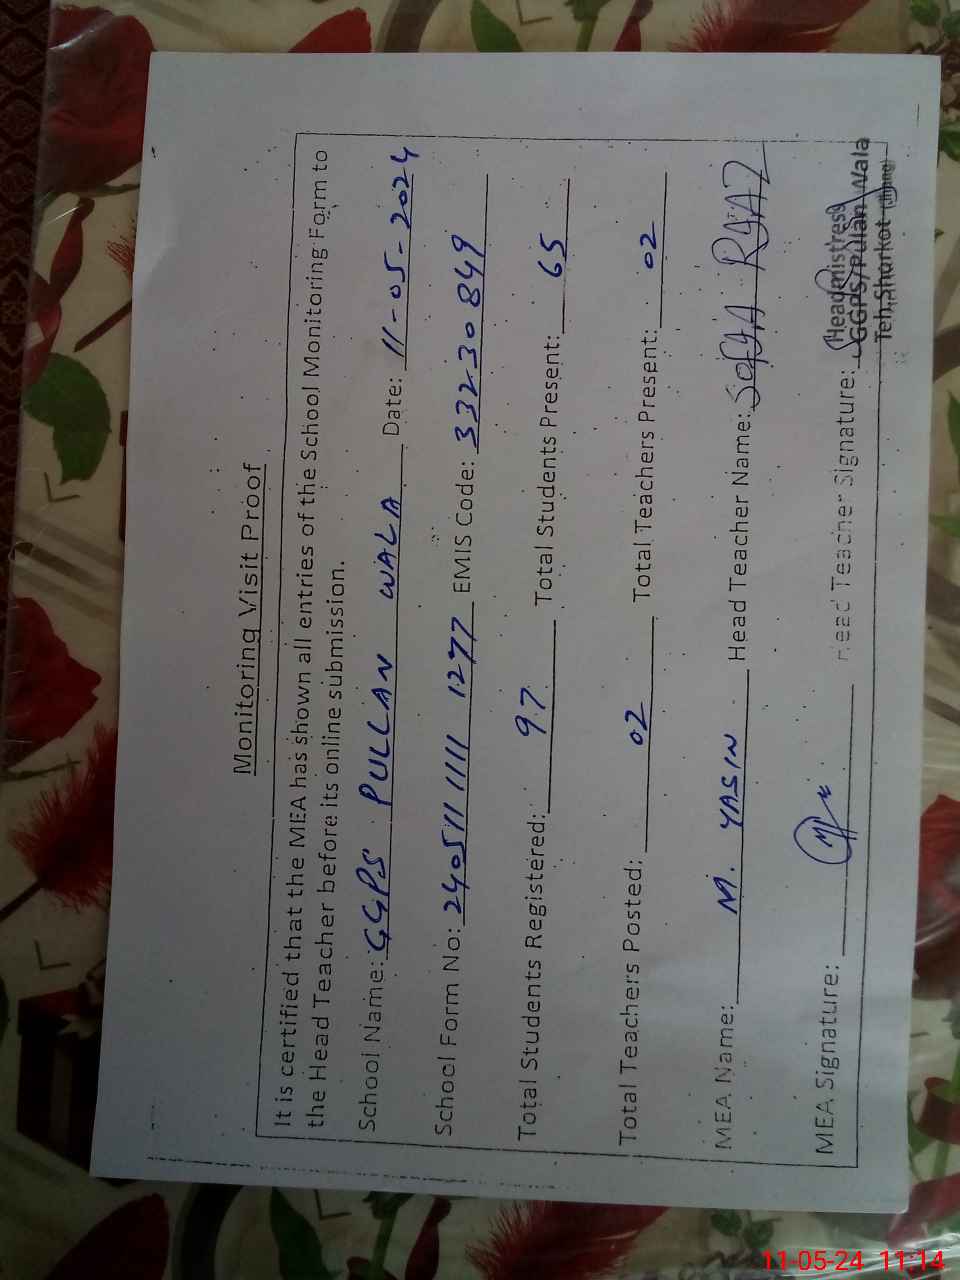 Monitoring Visit Proof
It is certified that the MEA has shown all entries of the School Monitoring Form to
the Head Teacher before its online submission.
School Name: GGPS PULLAN WALA Date: 11-05-2024
School Form No: 240511 1111 1277 EMIS Code: 33230849
Total Students Registered: 97 Total Students Present: 65
Total Teachers Posted: 02 Total Teachers Present: 02
MEA Name: M. YASIN Head Teacher Name:
MEA Signature: Head Teacher Signature:
Headmistress
GGPS/Pulan Wala
Teh.Shorkot (Jhang)
11-05-24 11:14